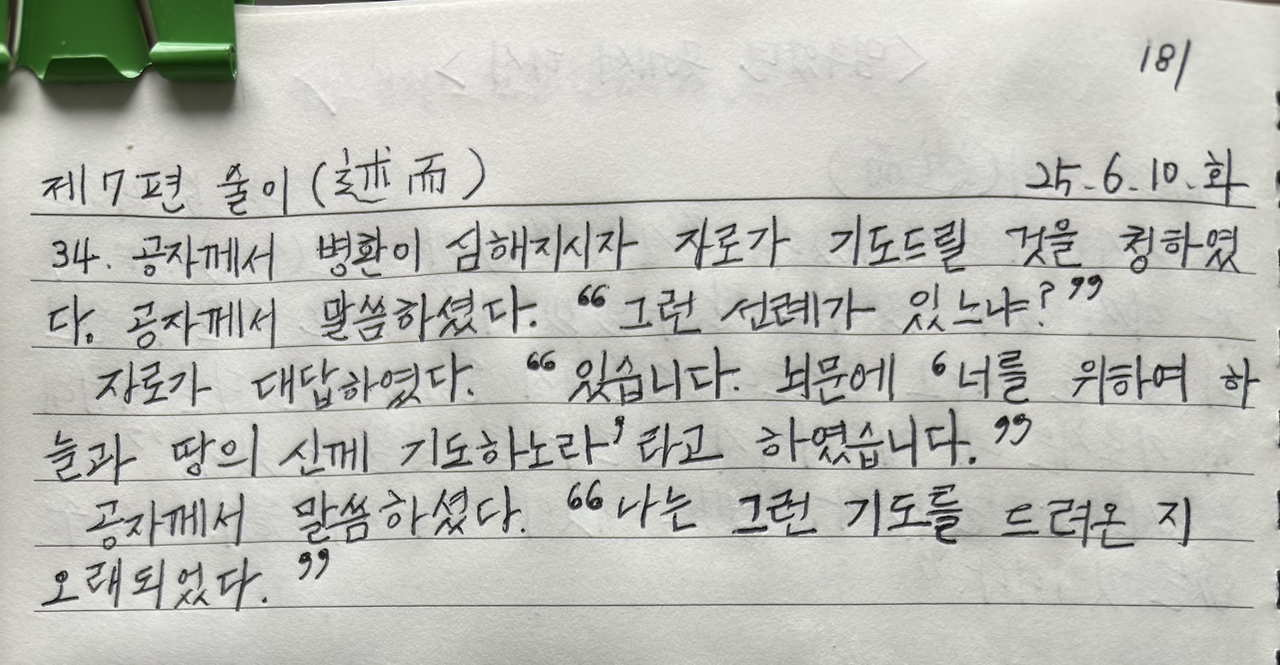 181
제7편 술이(述而) 25.6.10.화
34. 공자께서 병환이 심해지시자 자로가 기도드릴 것을 청하였
다. 공자께서 말씀하셨다. “그런 선례가 있느냐?”
자로가 대답하였다. “있습니다. 뇌문에 ‘너를 위하여 하
늘과 땅의 신께 기도하노라’라고 하였습니다.”
공자께서 말씀하셨다. “나는 그런 기도를 드려온 지
오래되었다.”